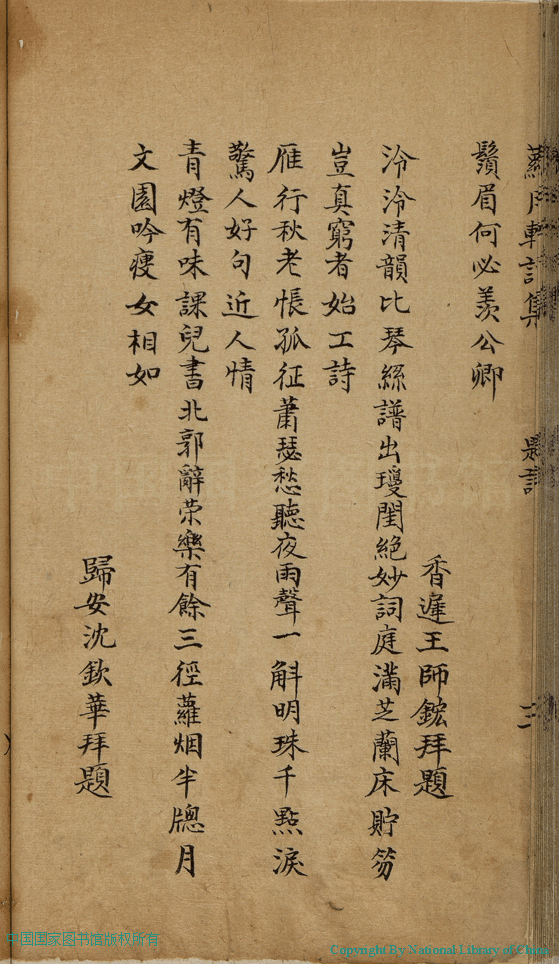 鬚眉何必羨公卿
香遲王師鋐拜題
泠泠清韻比琴絲譜出瓊閨絕妙詞庭滿芝蘭床貯笏
豈真窮者始工詩
雁行秋老悵孤征蕭瑟愁聽夜雨聲一斛明珠千點淚
驚人好句近人情
青燈有味課兒書北郭辭荣樂有餘三徑蘿烟半牕月
文園吟瘦女相如
歸安沈欽華拜題
中国国家图书馆版权所有
Copyright By National Library of China